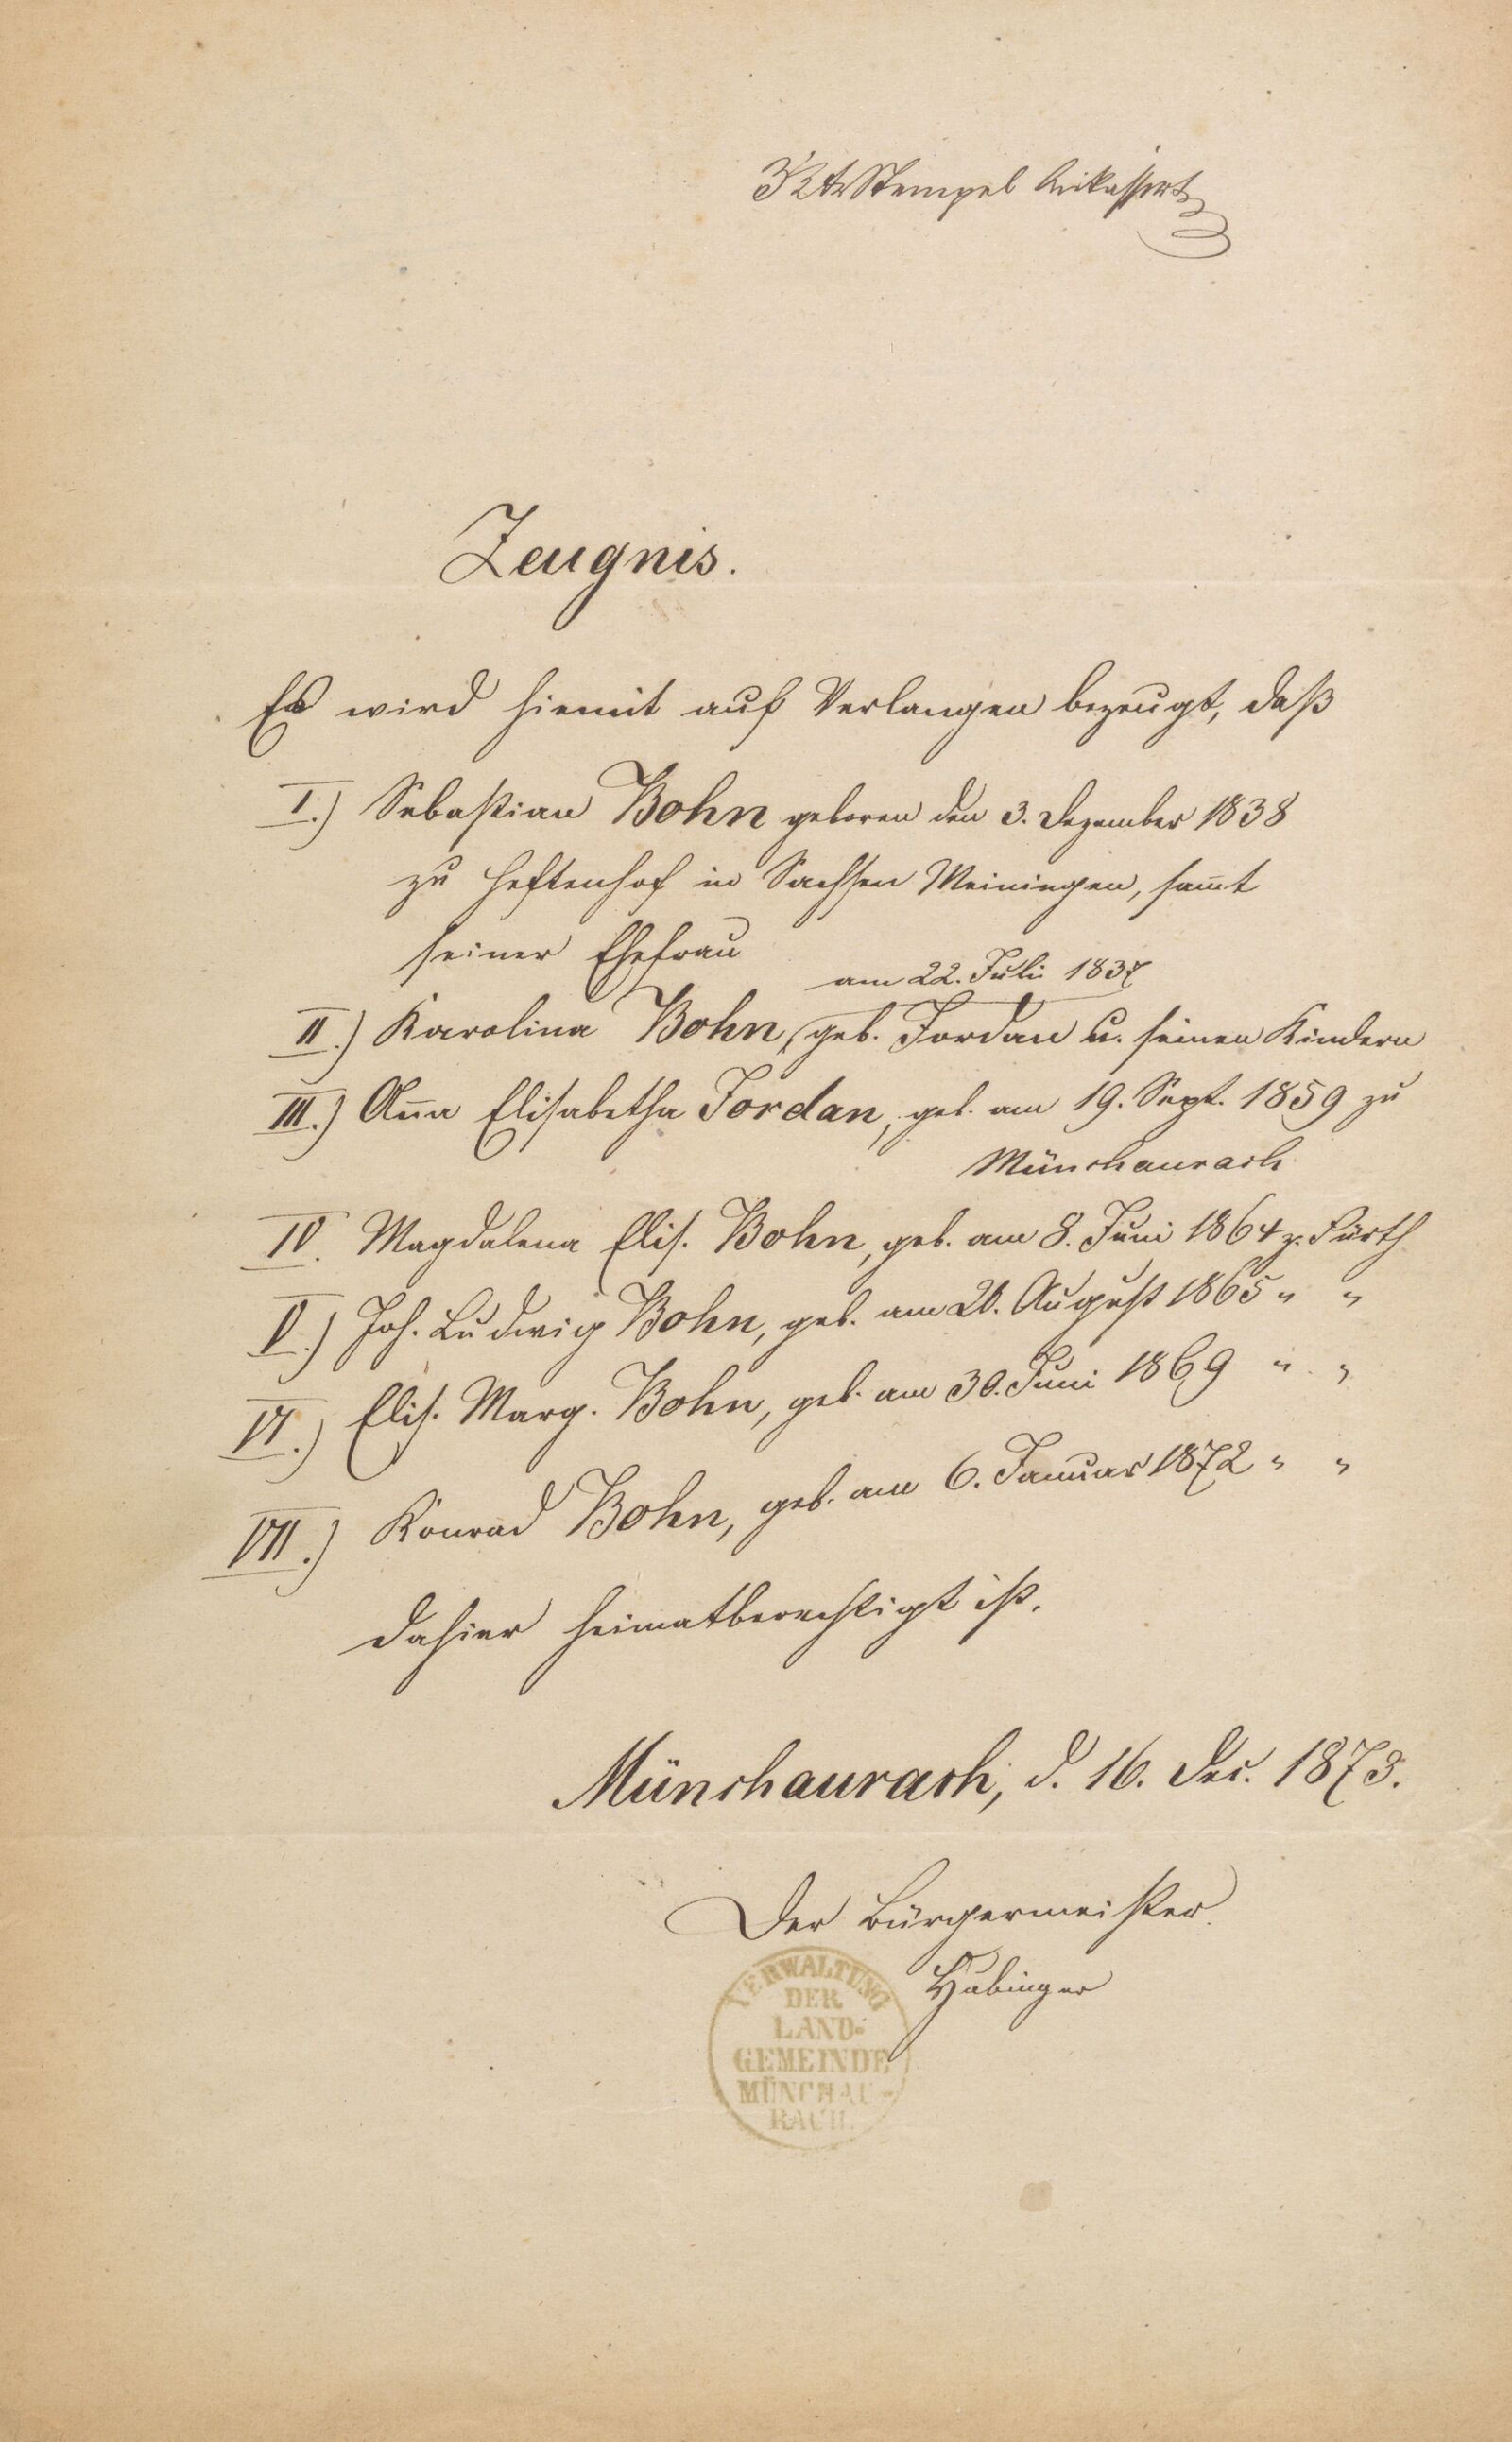 3 Kr Stempel kassirt
Zeugnis.
Es wird hiemit auf Verlangen bezeugt, daß
I.) Sebastian Bohn geboren den 3. Dezember 1838
zu Heftenhof in Sachsen Meiningen, sam̄t
seiner Ehefrau
am 22. Juli 1837
II.) Karolina Bohn, geb. Jordan u. seinen Kindern
III.) An̄a Elisabetha Jordan, geb. am 19. Sept. 1859 zu
Münchaurach
IV. Magdalena Elis. Bohn, geb. am 8. Juni 1864 z. Fürth
V.) Joh. Ludwig Bohn, geb. am 28. August 1865 " "
VI.) Elis. Marg. Bohn, geb. am 30. Juni 1869 " "
VII.) Konrad Bohn, geb. am 6. Januar 1872 " "
dahier heimatberechtigt ist.
Münchaurach, d. 16. Dec. 1873.
Der Bürgermeister
Hubinger
VERWALTUNG
DER
LAND-
GEMEINDE
MÜNCHAU-
RACH.